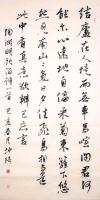 結廬在人境而無車馬喧問君何
能尔心遠地自偏采菊東籬下悠
然見南山山氣日夕佳飛鳥相與還
此中有真意欲辨已忘言
陶淵明飲酒詩一首